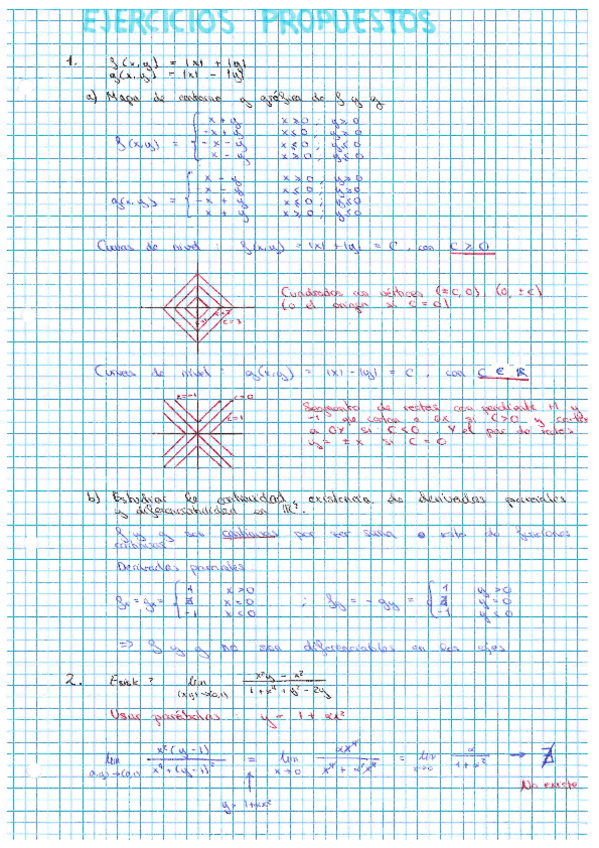 EJERCICIOS PROPUESTOS
1. f(x,y) = |x| + |y|
g(x,y) = |x| - |y|
a) Mapa de contorno y gráfica de f y g
f(x,y) = { x + y x≥0 ; y≥0
-x + y x≤0 ; y≥0
-x - y x≤0 ; y≤0
x - y x≥0 ; y≤0
g(x,y) = { x - y x≥0 ; y≥0
-x - y x≤0 ; y≥0
-x + y x≤0 ; y≤0
x + y x≥0 ; y≤0
Curvas de nivel : f(x,y) = |x| + |y| = C , con C≥0
Cuadrados de vértices (±C, 0), (0, ±C)
(o el origen si C = 0)
C=2
C=3
Curvas de nivel : g(x,y) = |x| - |y| = C , con C ∈ ℝ
C=-1 C=0
C=1
Segmento de rectas con pendiente +1 y
-1 que cortan a OX si C>0 y cortan
a OY si C<0. Y el par de rectas
y = ±x si C = 0
b) Estudiar la continuidad, existencia de derivadas parciales
y diferenciabilidad en ℝ².
f y g son continuas por ser suma o resta de funciones
continuas
Derivadas parciales
fx = gx = { 1 x>0
∄ x=0
-1 x<0
; fy = -gy = { 1 y>0
∄ y=0
-1 y<0
=> f y g no son diferenciables en los ejes
2. Existe? lim (x,y)→(0,1) x²y - x² / 1 + x⁴ + y² - 2y
Usar parábolas : y = 1 + αx²
lim (x,y)→(0,1) x²(y-1) / x⁴+(y-1)² = lim x→0 αx⁴ / x⁴ + α²x⁴ = lim x→0 α / 1+α² → ∄
No existe
y = 1+αx²